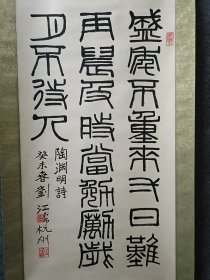 盛年不重来一日难
再晨及時當勉勵歲
月不待人
陶淵明詩
癸未春劉江書杭州